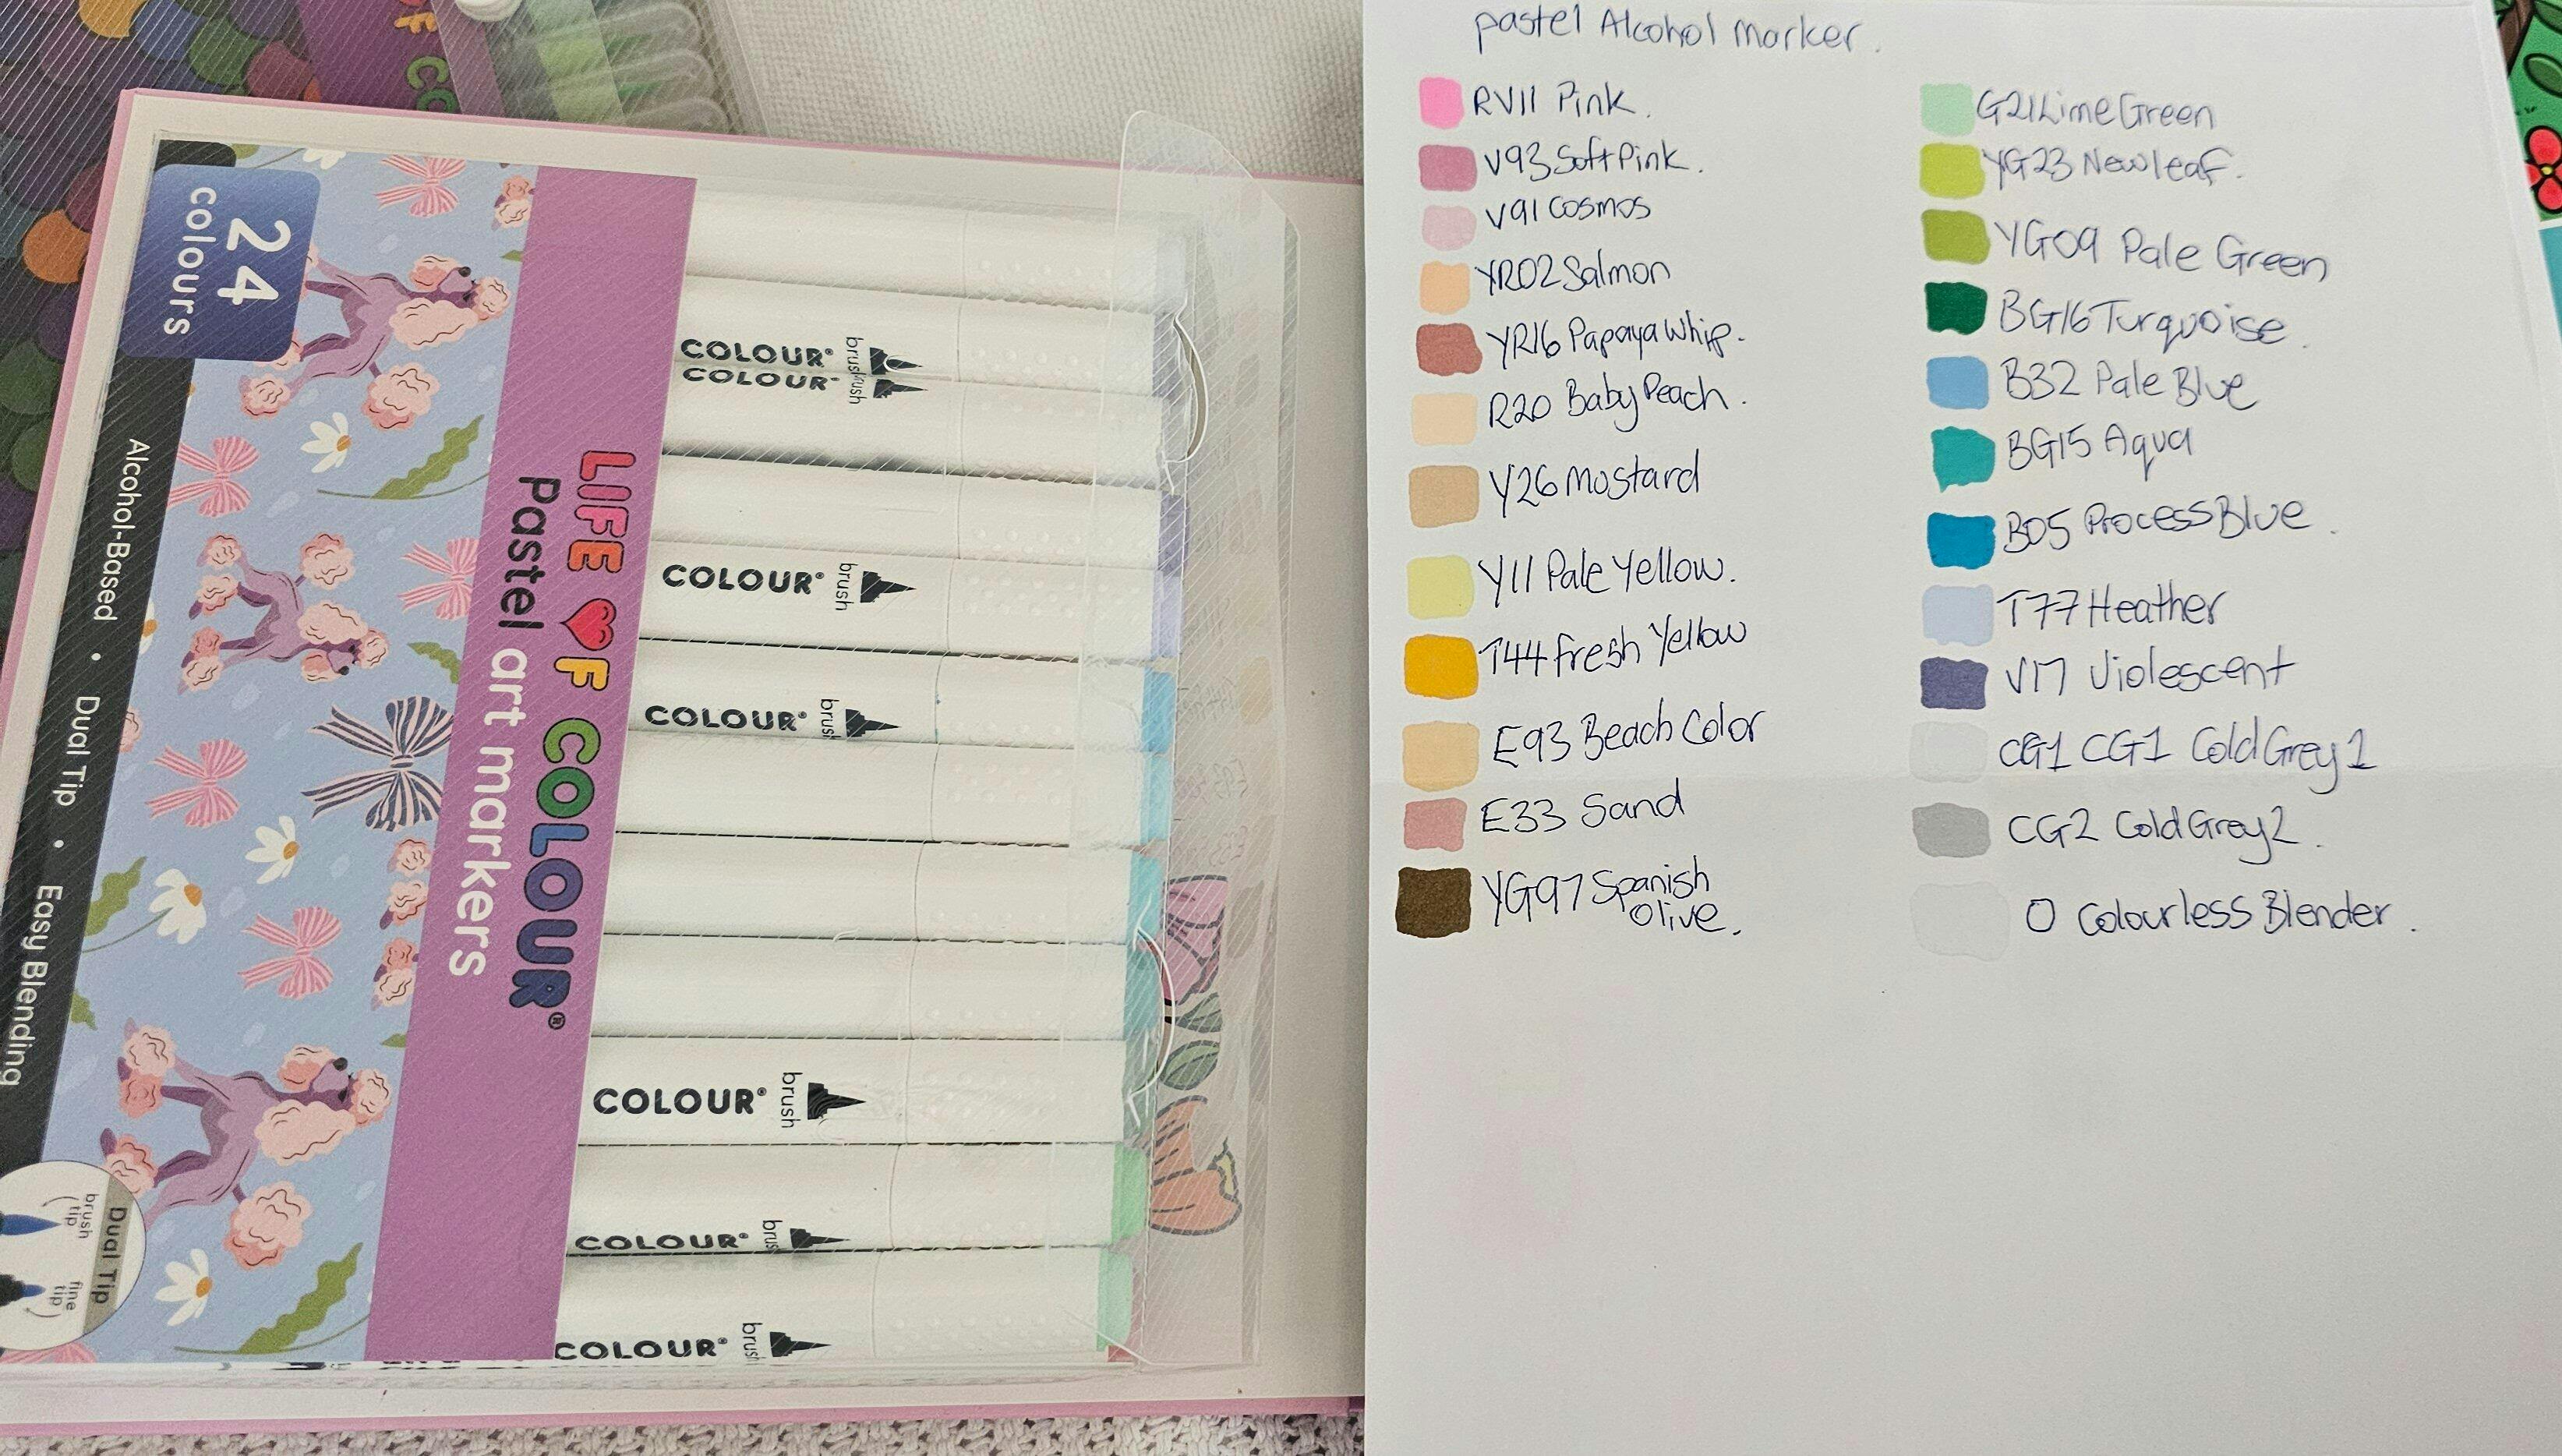 24
colours
Alcohol-Based • Dual Tip • Easy Blending
LIFE OF COLOUR®
Pastel art markers
Dual Tip
brush tip
fine tip
COLOUR® brush
COLOUR® brush
COLOUR® brush
COLOUR® brush
COLOUR® brush
COLOUR® brus
COLOUR® brush
pastel Alcohol Marker.
RV11 Pink.
V93 Soft Pink.
V91 Cosmos
YR02 Salmon
YR16 Papaya Whip.
R20 Baby Peach.
Y26 Mostard
Y11 Pale Yellow.
T44 Fresh Yellow
E93 Beach Color
E33 Sand
YG97 Spanish
Olive.
G21 Lime Green
YG23 New leaf.
YG09 Pale Green
BG16 Turquoise.
B32 Pale Blue
BG15 Aqua
B05 Process Blue.
T77 Heather
V17 Violescent
CG1 CG1 Cold Grey 1
CG2 Cold Grey 2.
0 Colourless Blender.